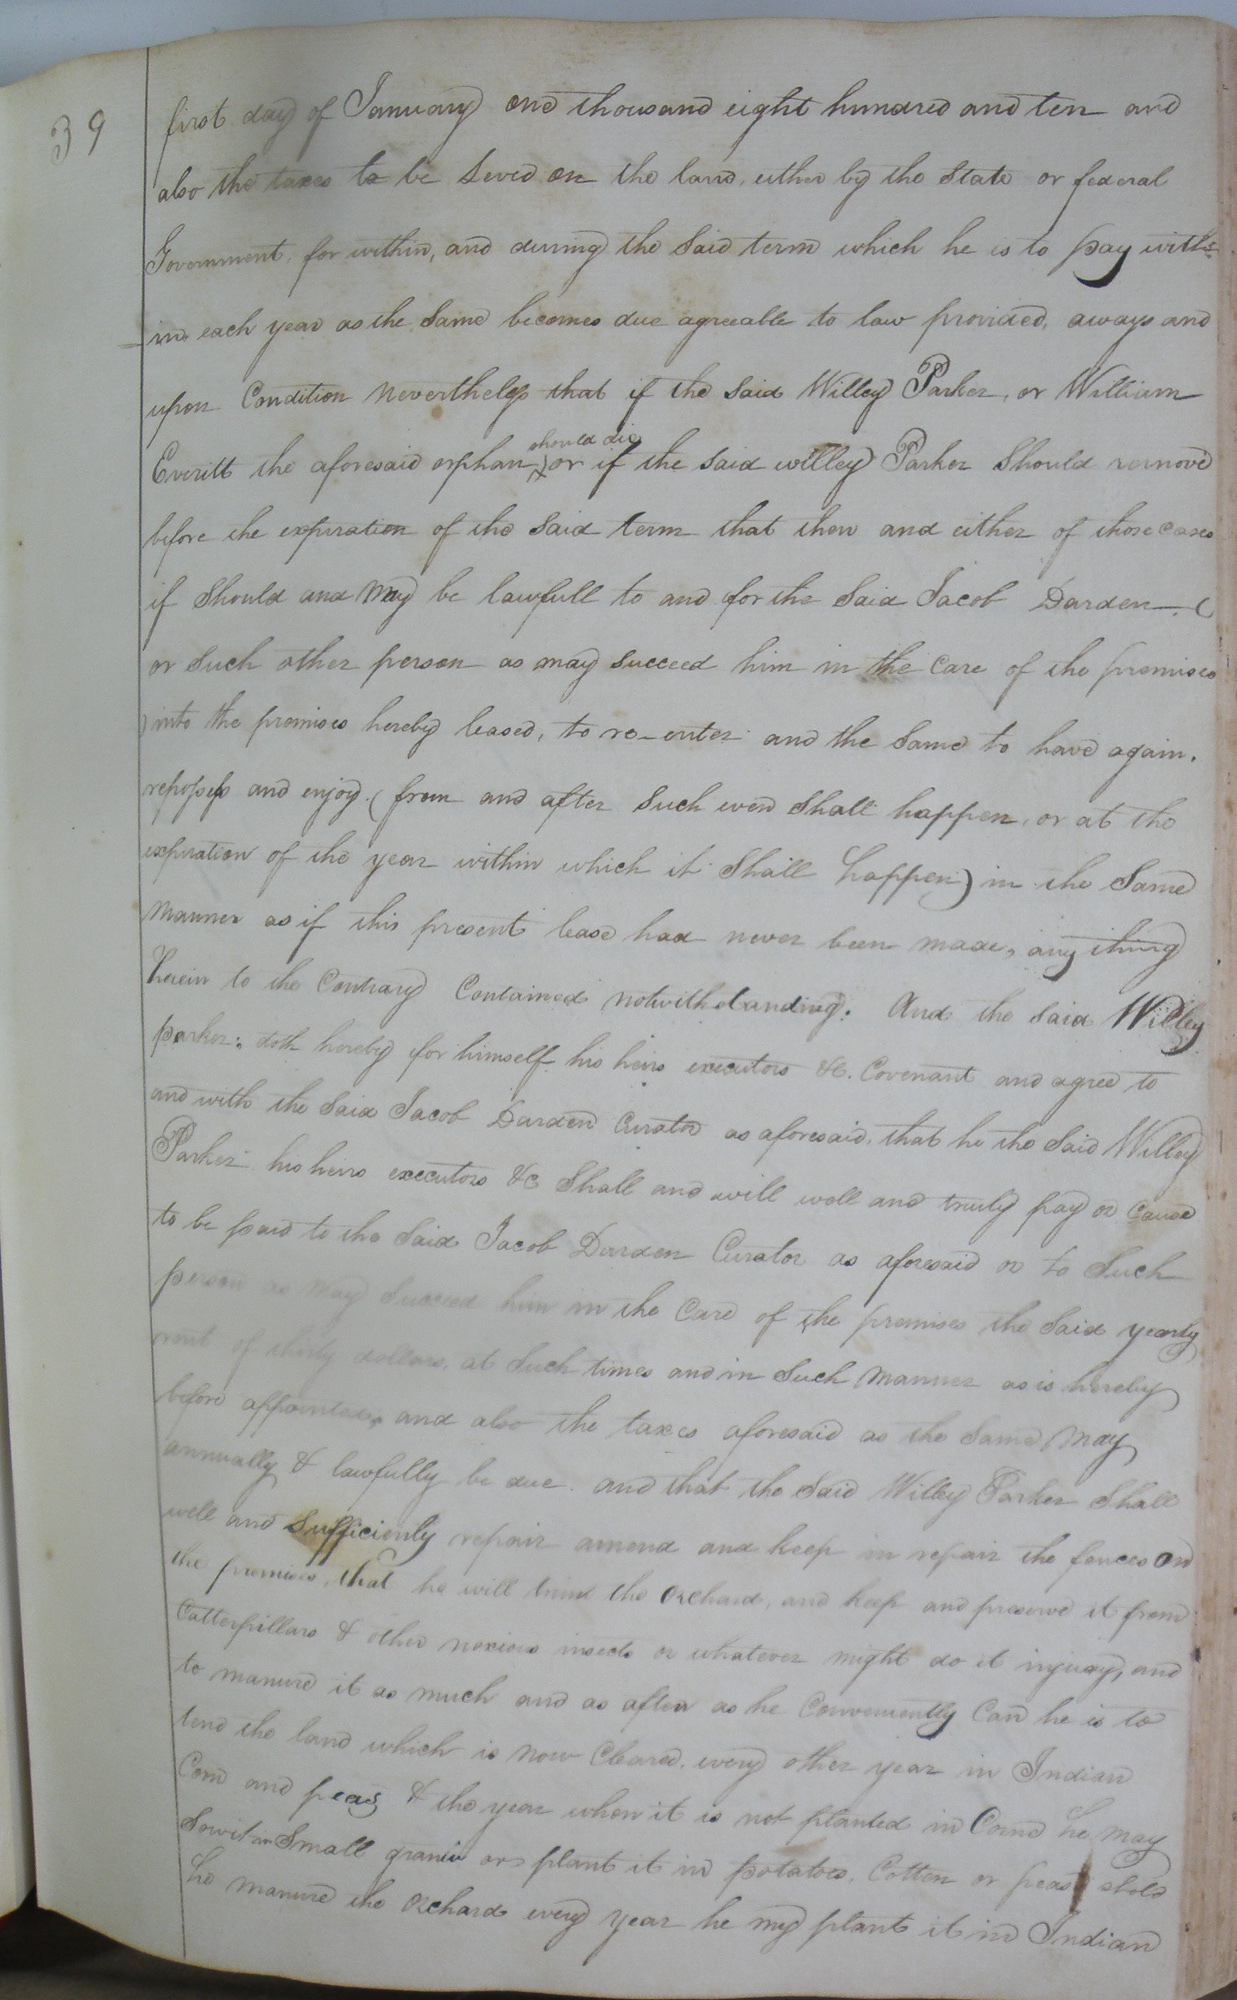 39
first day of January one thousand eight hundred and ten and
also the taxes to be Leved on the land, either by the State or federal
Government, for within, and during the Said term which he is to pay with=
in each year as the Same becomes due agreeable to law provided, aways and
upon Condition Nevertheless that if the Said Willey Parker, or William
should die
Everitt the aforesaid orphan, or if the said willey Parker Should remove
before the expiration of the Said term that then and either of those cases
if Should and May be lawfull to and for the Said Jacob Darden (
or Such other person as may succeed him in the Care of the premises
) into the premises hereby leased, to re-enter and the Same to have again,
repossess and enjoy (from and after Such even Shall happen, or at the
expiration of the year within which it Shall happen) in the Same
Manner as if this present lease had never been made, any thing
herein to the Contrary Contained notwithstanding. And the said Willey
parker: doth hereby for himself his heirs executors &c. Covenant and agree to
and with the Said Jacob Darden Curator as aforesaid, that he the Said Willey
Parker his heirs executors &c Shall and will well and truly pay or Cause
to be paid to the Said Jacob Darden Curator as aforesaid or to Such
person as May Succeed him in the Care of the premises the Said yearly
rent of thirty dollars, at Such times and in Such Manner as is hereby
before appointed, and also the taxes aforesaid as the Same May
annually & lawfully be due. and that the Said Willey Parker Shall
well and Sufficiently repair amend and keep in repair the fences on
the premises, that he will trim the Orchard, and keep and preserve it from
Catterpillars & other noxious insects or whatever might do it injury, and
to manure it as much and as often as he Conveniently Can he is to
tend the land which is now Cleared, every other year in Indian
Corn and peas & the year when it is not planted in Corn he may
Sow it in Small grain or plant it in potatoes, Cotten or peas
he manure the Orchard every year he my plant it in Indian